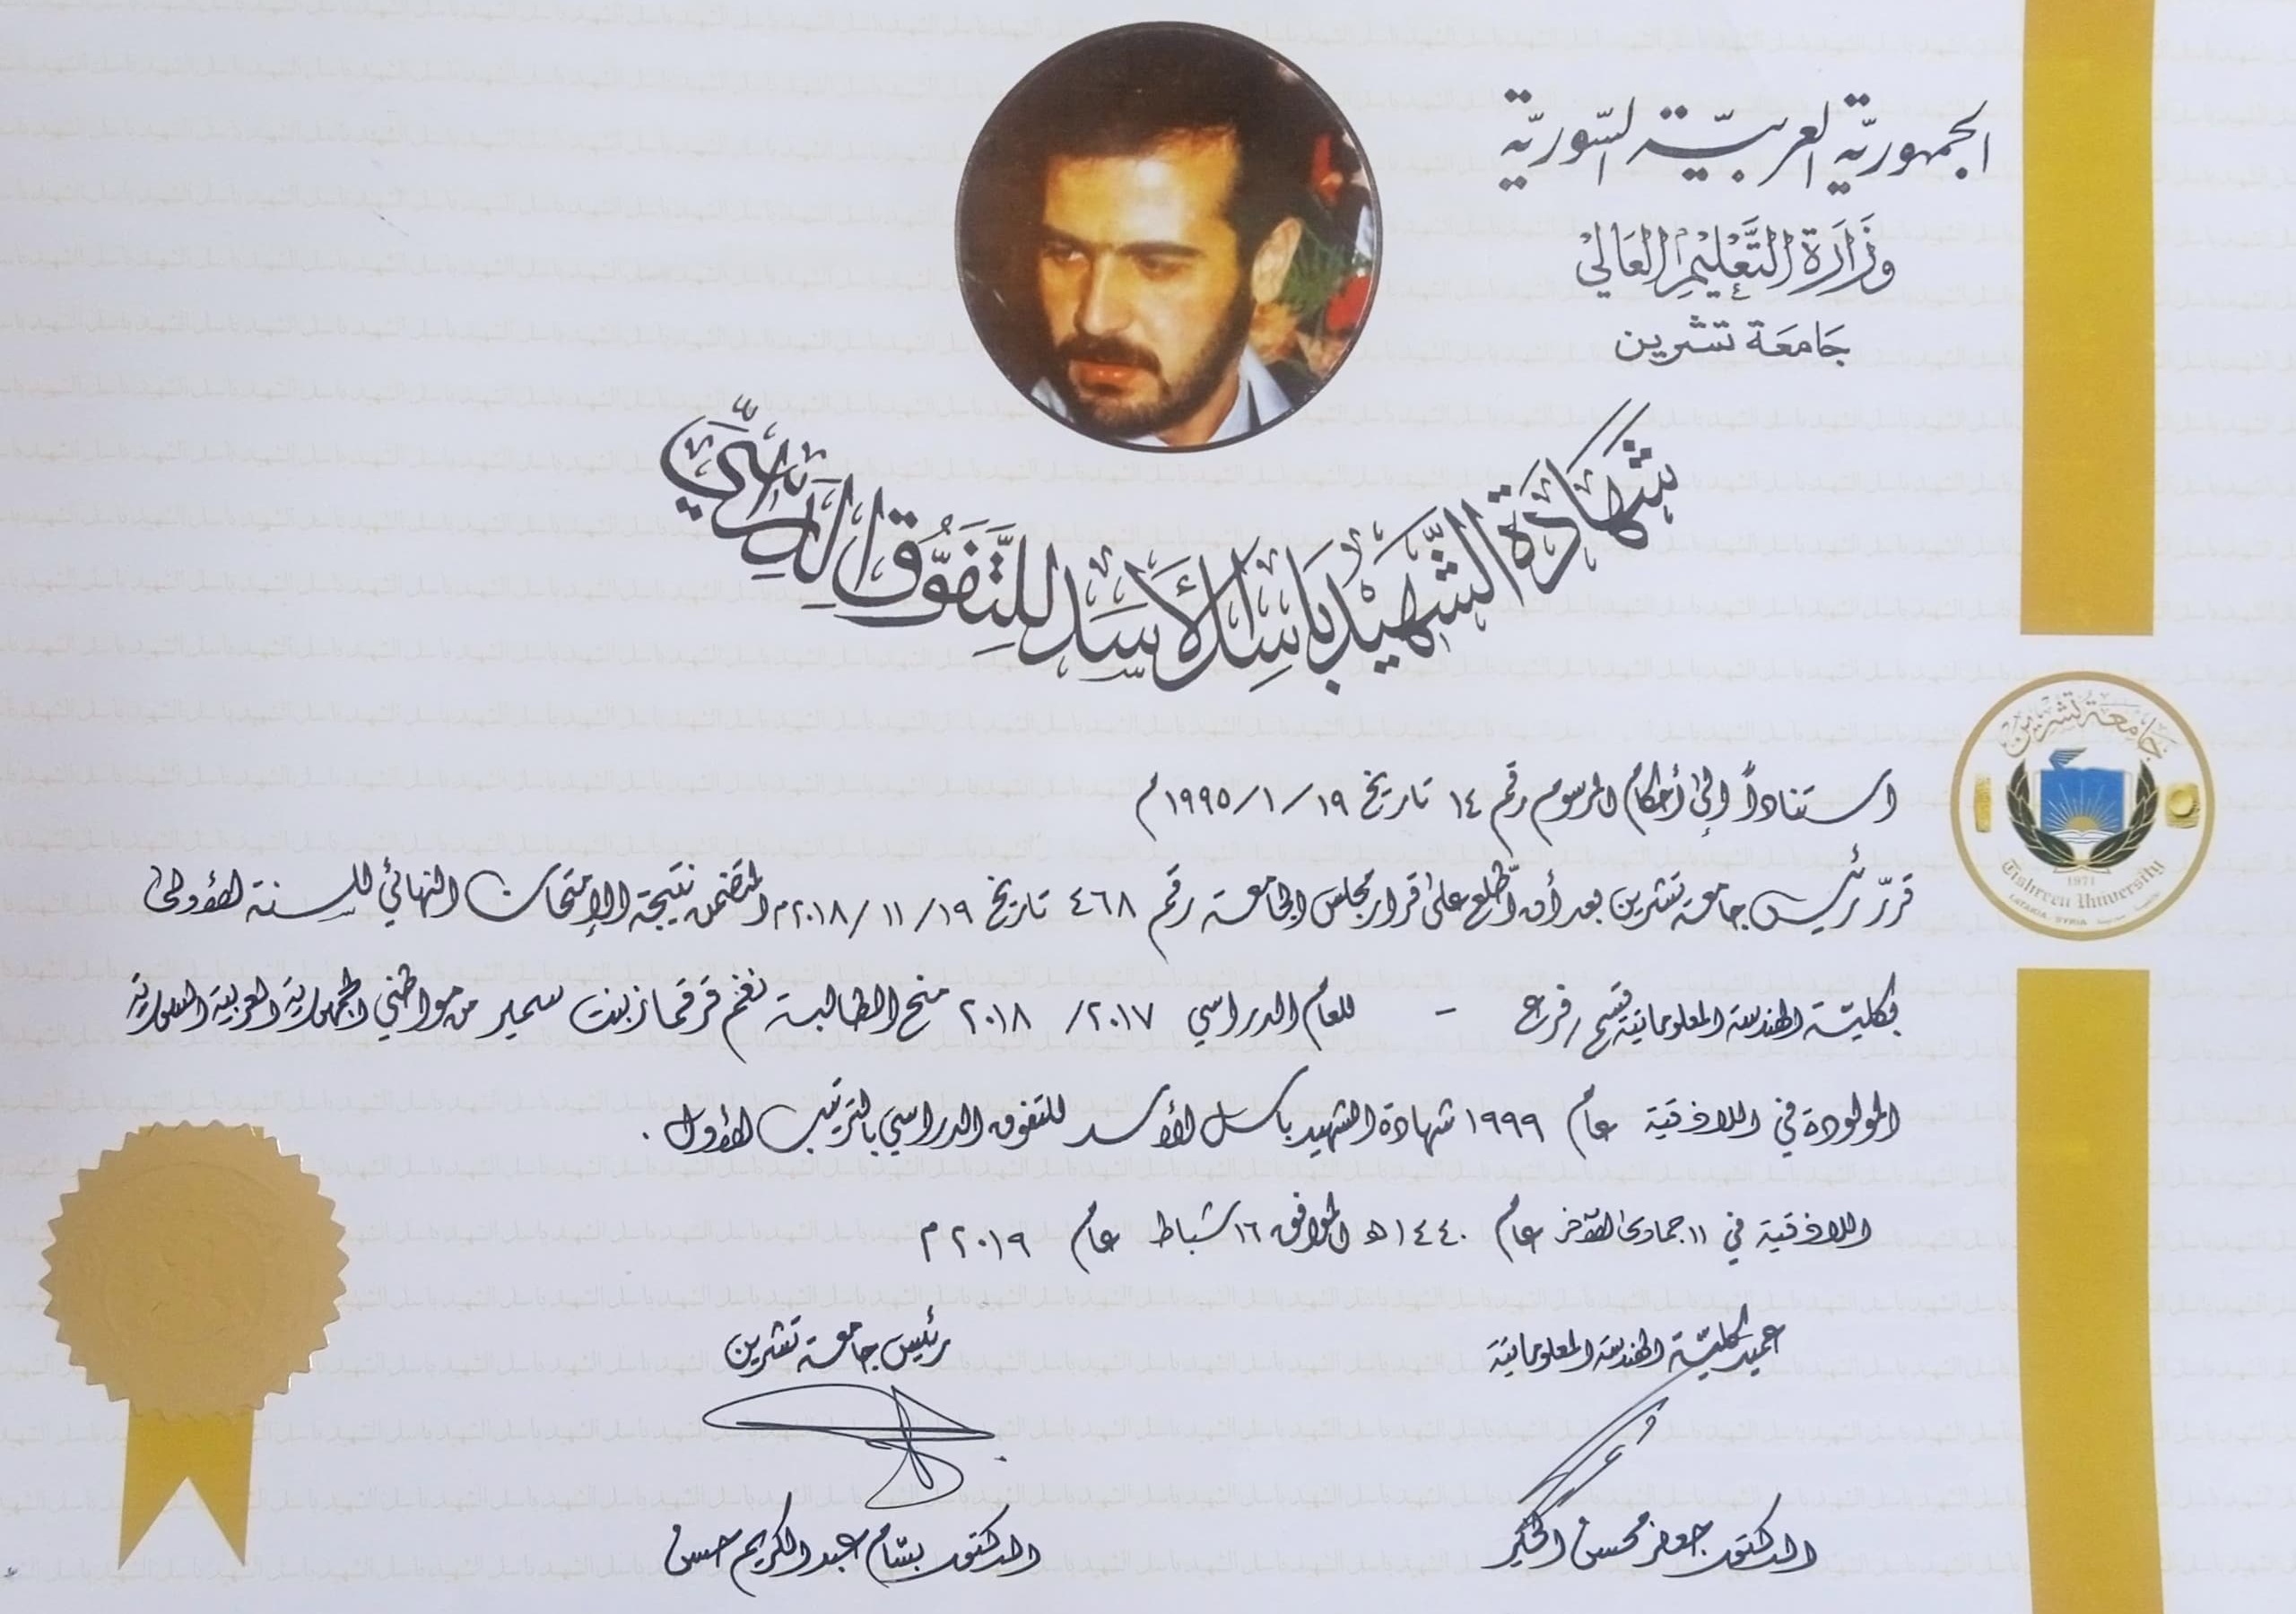 الجمهوريّة العربيّة السّوريّة
وَزَارَة التَّعْليْم العَالي
جَامعَة تشرين
شَهَادَة الشَّهيْد بَاسِل الأَسَد للتَّفَوُّق الدِّرَاسيّ
جَامعَة تشرين
1971
Tishreen University
LATAKIA - SYRIA
استناداً إلى أحكام المرسوم رقم ١٤ تاريخ ١٩/١/١٩٩٥م
قرّر رئيس جامعة تشرين بعد أن اطّلع على قرار مجلس الجامعة رقم ٤٦٨ تاريخ ١٩/١١/٢٠١٨م المتضمن نتيجة الإمتحان النهائي للسنة الأولى
بكليّة الهندسة المعلوماتية قسم/فرع - للعام الدراسي ٢٠١٧/ ٢٠١٨ منح الطالبة نغم قرقماز بنت سمير من مواطني الجمهورية العربية السورية
المولودة في اللاذقية عام ١٩٩٩ شهادة الشهيد باسل الأسد للتفوق الدراسي بالترتيب الأول .
اللاذقية في ١١ جمادى الآخر عام ١٤٤٠هـ الموافق ١٦ شباط عام ٢٠١٩م
عميد كليّة الهندسة المعلوماتية
رئيس جامعة تشرين
الدكتور جعفر محسن الخيّر
الدكتور بسّام عبد الكريم حسن